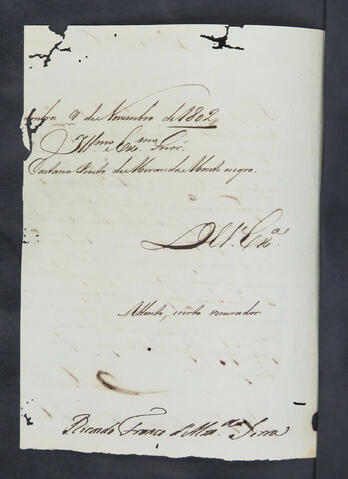 imbra 9 de Novembro de 1802
Illmo. e Exmo. Snror.
Caetano Pinto de Miranda Monte negro.
De V. Exa.
Attento, e certo venerador
Ricardo Franco d'Almda. Serra